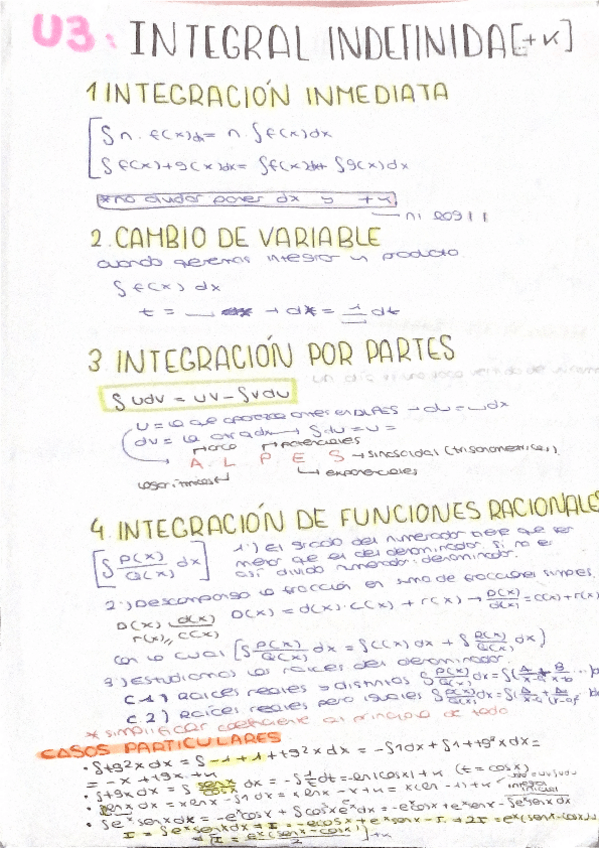 U3: INTEGRAL INDEFINIDA [+k]
1 INTEGRACIÓN INMEDIATA
∫n·f(x)dx = n·∫f(x)dx
∫f(x)+g(x)dx = ∫f(x)dx+ ∫g(x)dx
*no olvidar poner dx y +k
ni log!!
2. CAMBIO DE VARIABLE
cuando queremos integrar un producto.
∫f(x) dx
t = → dx = dt
3 INTEGRACIÓN POR PARTES
∫udv = uv - ∫vdu
u = lo que aparezca antes en ALPES → du = dx
dv = la otra dx → ∫dv = v =
arco potenciales
A. L P E S → sinosoidal (trigonometricas)
logaritmicas exponenciales
4. INTEGRACIÓN DE FUNCIONES RACIONALES
[∫P(x)/Q(x) dx] 1º) El grado del numerador tiene que ser
menor que el del denominador, si no es
así divido numerador:denominador.
2º) Descompongo la fracción en suma de fracciones simples.
D(x) d(x) D(x) = d(x)·c(x) + r(x) → D(x)/d(x) = c(x)+r(x)
r(x) c(x)
con lo cual [∫P(x)/Q(x) dx = ∫c(x) dx + ∫R(x)/Q(x) dx]
3º) Estudiamos las raíces del denominador.
C.1) Raíces reales y distintas ∫P(x)/Q(x) dx = ∫(A/x-a + B/x-b
C.2) Raíces reales pero iguales ∫P(x)/Q(x) dx = ∫(
* simplificar coeficiente al principio de todo
CASOS PARTICULARES
• ∫tg²x dx = ∫-1+1+tg²x dx = -∫1dx + ∫1+tg²x dx =
= -x + tgx + k
• ∫tgx dx = ∫ dx = -∫1/t dt = -ln|cosx| + k (t = cosx)
• ∫lnx dx = xlnx - ∫1dx = xlnx - x + k = x(ln -1) + k
integral inicial
• ∫eˣ senx dx = -eˣcosx + ∫cosx eˣdx = -eˣcosx + eˣsenx - ∫eˣsenx dx
I = ∫eˣsenxdx → I = -eˣcosx + eˣsenx - I → 2I = eˣ(senx-cosx)
→ I = eˣ(senx-cosx)/2 + k